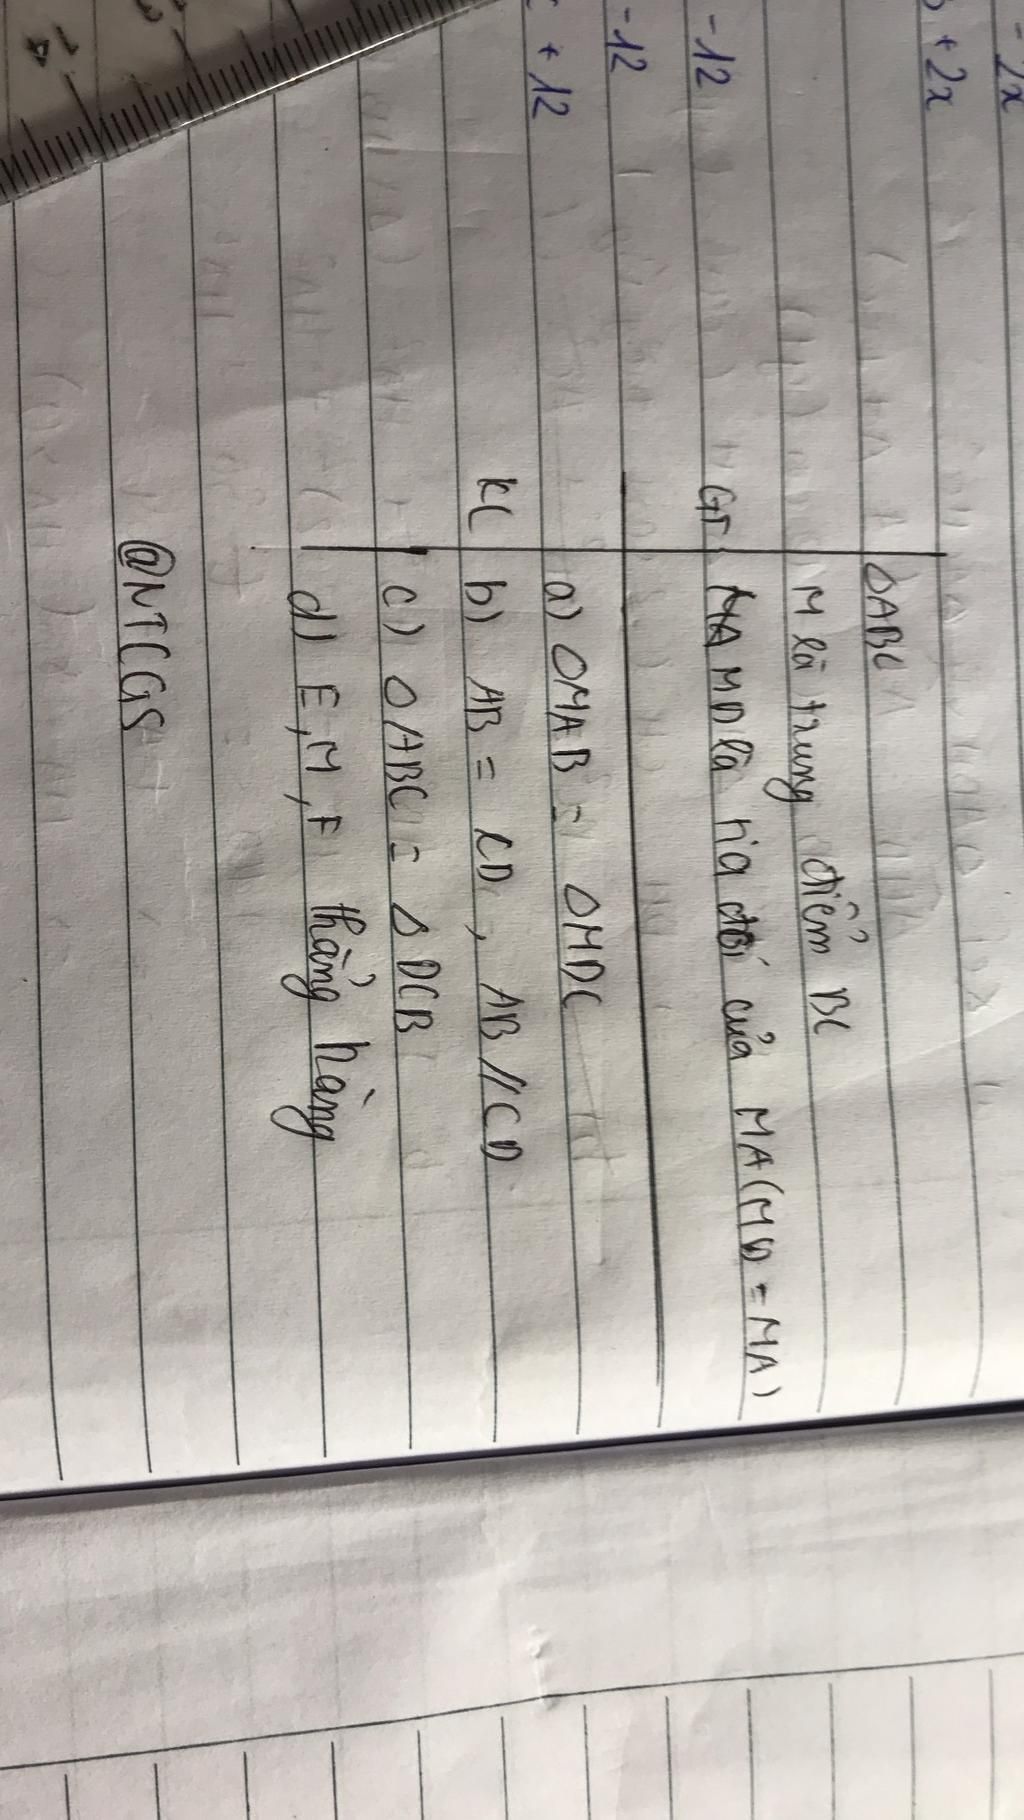 - 2x
+ 2x
- 12
- 12
+ 12
ΔABC
M là trung điểm BC
GT MD là tia đối của MA (MD = MA)
a) ΔMAB = ΔMDC
KL b) AB = CD, AB // CD
c) ΔABC = ΔDCB
d) E, M, F thẳng hàng
@NTCGS
14